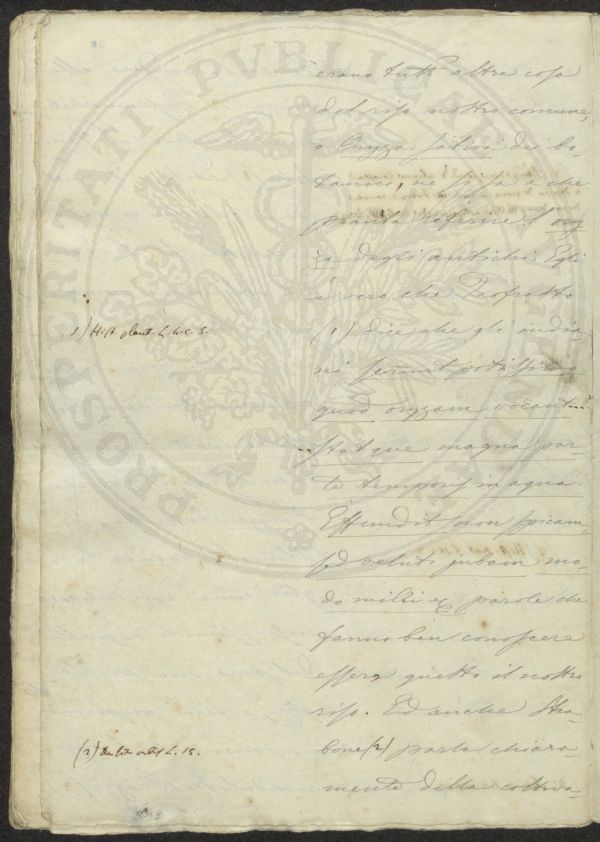 erano tutt' altra cosa
del riso nostro comune,
o Oryza sativa dei bo-
tanici, ne si sa a che
pianta riferire l' ory-
za degli antichi. Egli
è vero che Teofrasto
(1) dice che gli india-
ni serunt potissimum
quod oryzam vocant....
...statque magna par-
te temporis in aqua.
Effundit non spicam,
sed veluti jubam mo-
do milii &c. parole che
fanno ben conoscere
essere questo il nostro
riso. Ed anche Stra-
bone (2) parla chiara-
mente della coltiva-
1) Hist. plant. L. 4. c. 5.
(2) L. 15.
PROSPERITATI PUBLICAE